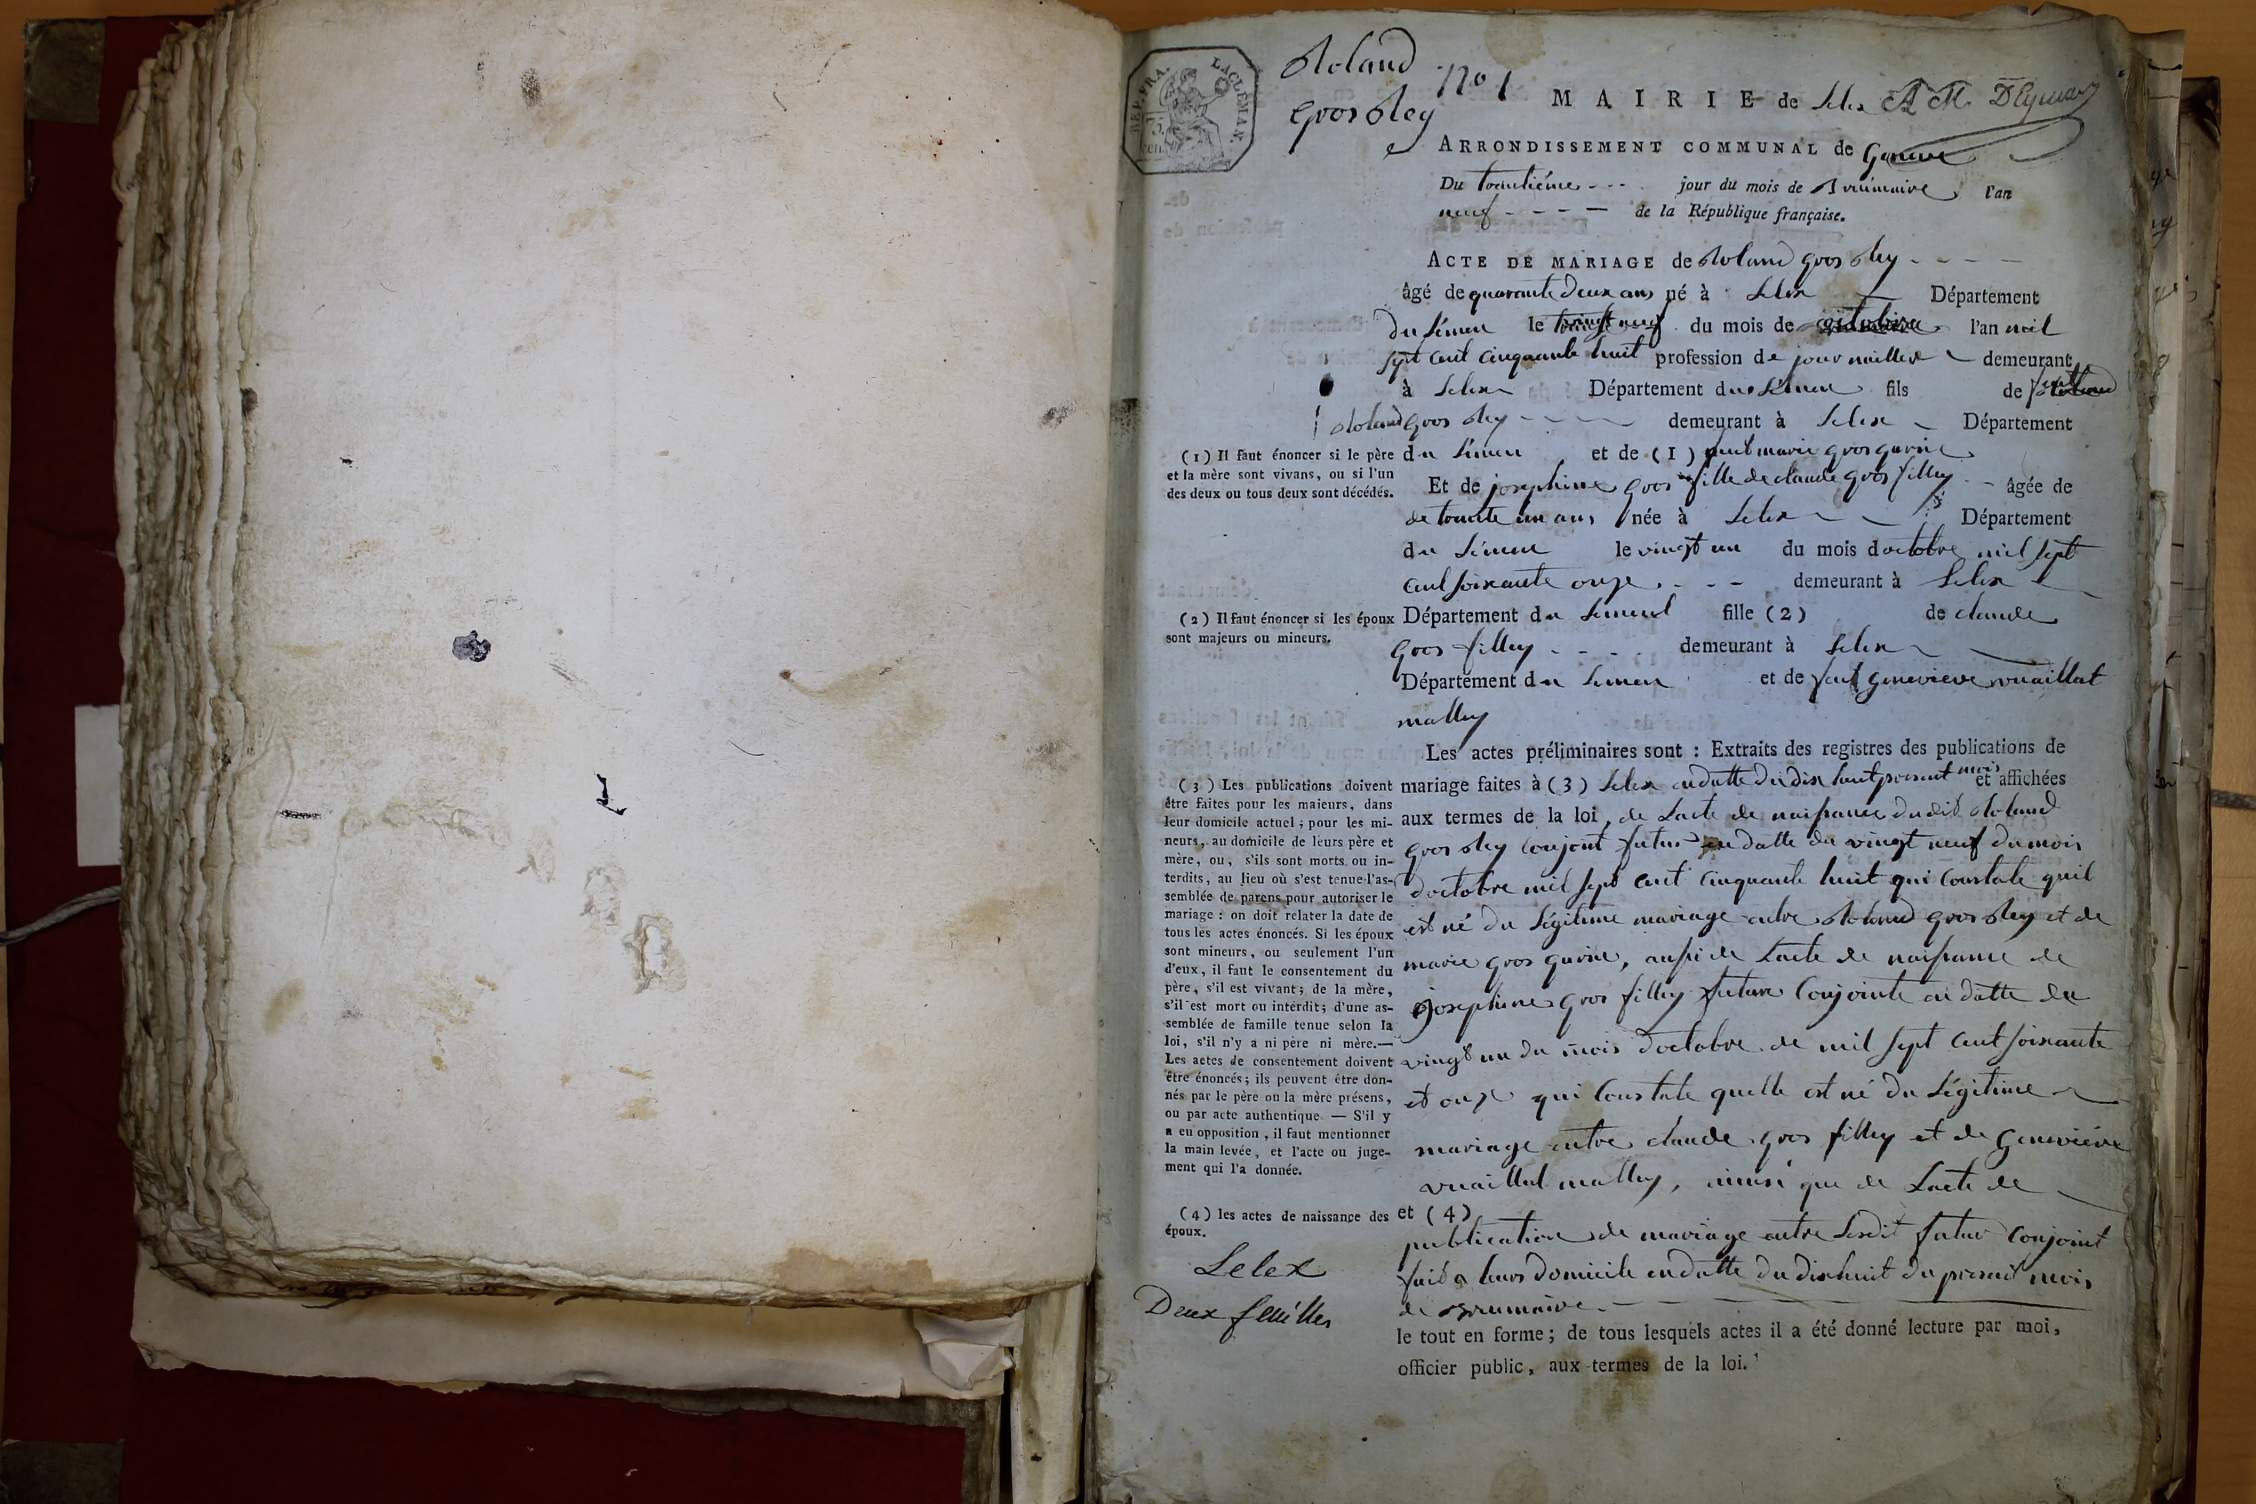 REP. FRA.
LACLEMAN.
75
cen.
Roland
gros Rey
no 1
MAIRIE de Lelex
ARRONDISSEMENT COMMUNAL de Geneve
Du trentième - - - jour du mois de Brumaire l'an
neuf - - - - de la République française.
ACTE DE MARIAGE de Roland gros Rey - - - -
âgé de quarante deux ans né à Lelex Département
du Léman le vingt neuf du mois de octobre l'an mil
sept cent cinquante huit profession de journallier demeurant
à Lelex Département du Léman fils de
Roland gros Rey - - - demeurant à Lelex Département
(1) Il faut énoncer si le père
et la mère sont vivans, ou si l'un
des deux ou tous deux sont décédés.
du Léman et de (1) feue marie gros gurin
Et de josephine gros fille de claude gros filley - - âgée de
de trente un ans née à Lelex Département
du Léman le vingt un du mois doctobre mil sept
cent soixante onze - - - demeurant à Lelex
(2) Il faut énoncer si les époux
sont majeurs ou mineurs.
Département du Lemend fille (2) de claude
gros filley - - - - demeurant à Lelex
Département du Leman et de feue genevieve vuaillat
malley
Les actes préliminaires sont : Extraits des registres des publications de
mariage faites à (3) Lelex en datte du dix huit present mois et affichées
aux termes de la loi, de Lacte de naissance dudit Roland
gros Rey conjoint futur en datte du vingt neuf du mois
doctobre mil sept cent cinquante huit qui constate quil
est né du Légitime mariage entre Roland gros Rey et de
marie gros gurin, aussi de Lacte de naissance de
josephine gros filley future Conjointe en datte du
vingt un du mois doctobre de mil sept cent soixante
et onze qui Constate quelle est né du Légitime
mariage entre claude gros filley et de Genevieve
vuaillat malley, ainsi que de Lacte de
(3) Les publications doivent
être faites pour les majeurs, dans
leur domicile actuel ; pour les mi-
neurs, au domicile de leurs père et
mère, ou, s'ils sont morts ou in-
terdits, au lieu où s'est tenue l'as-
semblée de parens pour autoriser le
mariage : on doit relater la date de
tous les actes énoncés. Si les époux
sont mineurs, ou seulement l'un
d'eux, il faut le consentement du
père, s'il est vivant ; de la mère,
s'il est mort ou interdit ; d'une as-
semblée de famille tenue selon la
loi, s'il n'y a ni père ni mère.—
Les actes de consentement doivent
être énoncés ; ils peuvent être don-
nés par le père ou la mère présens,
ou par acte authentique — S'il y
a eu opposition, il faut mentionner
la main levée, et l'acte ou juge-
ment qui l'a donnée.
(4) les actes de naissance des
époux.
et (4)
publication de mariage entre Lesdit futur Conjoint
fait a leurs domicile en datte du dix huit du present mois
de Brumaire - - -
le tout en forme ; de tous lesquels actes il a été donné lecture par moi,
officier public, aux termes de la loi.
Lelex
Deux feuilles